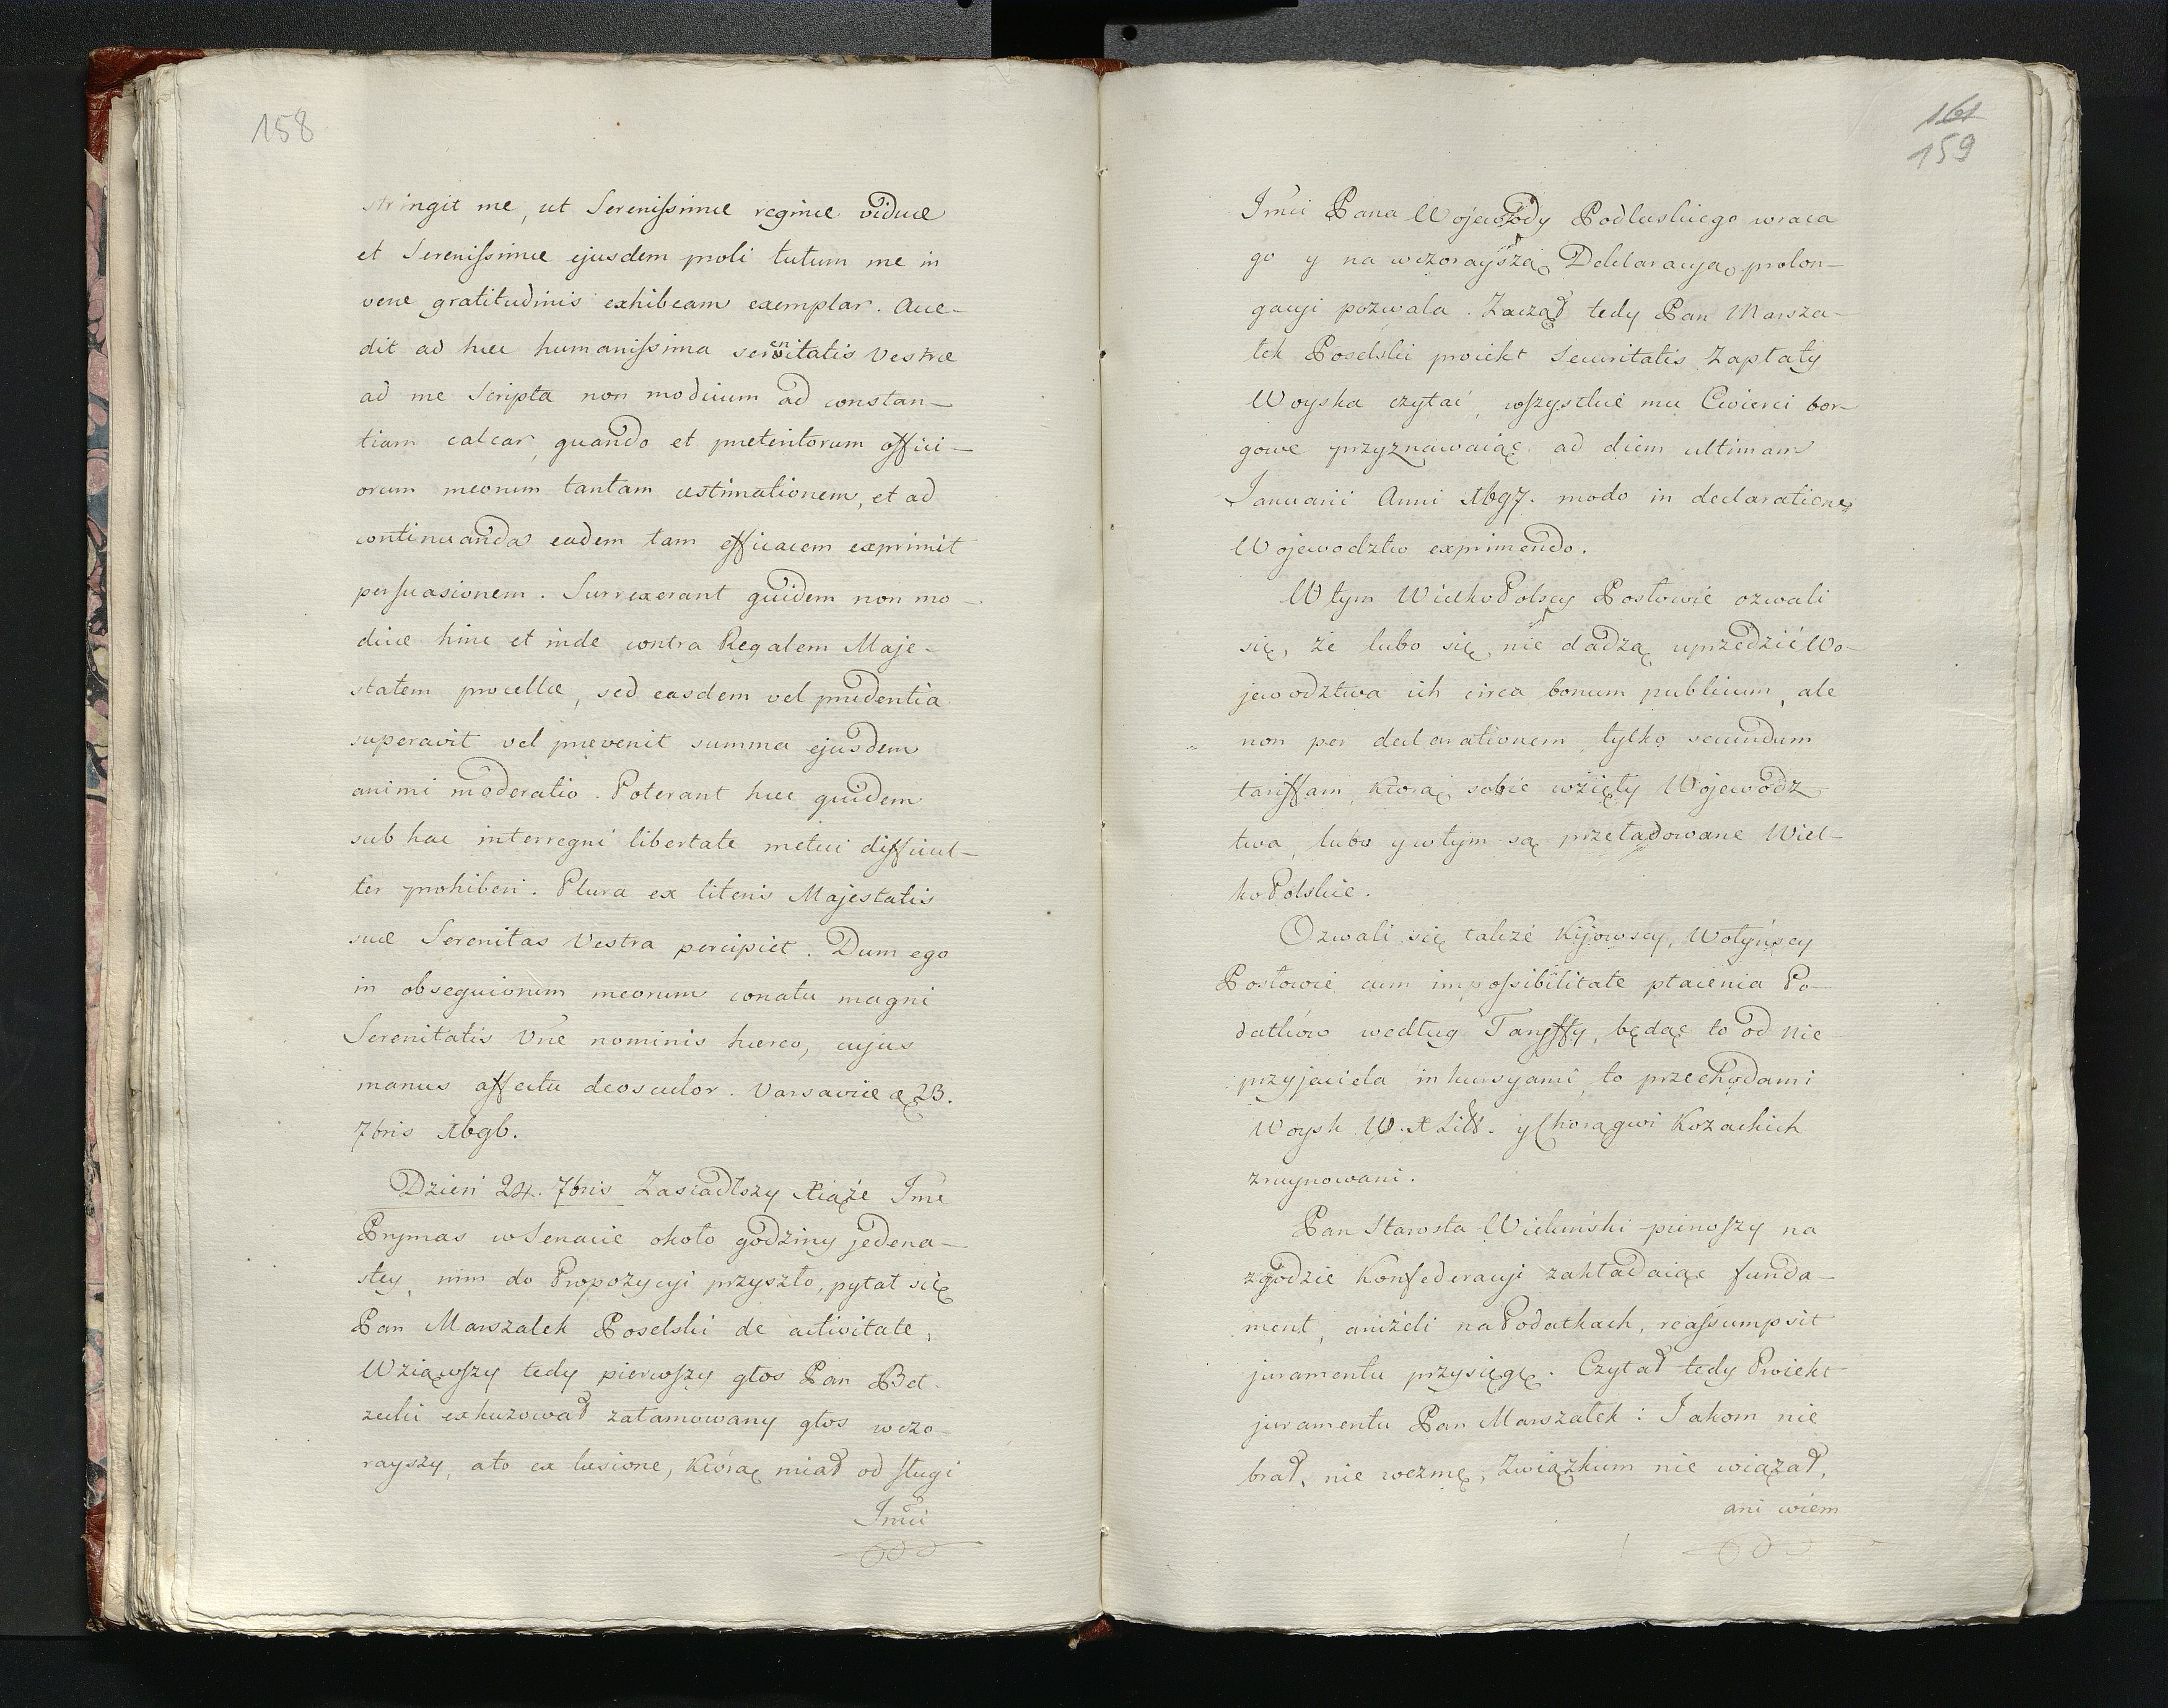 158
stringit me, ut Serenissimæ reginæ viduæ
et Serenissimæ ejusdem proli tutum me in
venæ gratitudinis exhibeam exemplar. Acce-
dit ad hæc humanissima serenitatis Vestræ
ad me Scripta non modicum ad constan-
tiam calcar, quando et præteritorum offici-
orum meorum tantam æstimationem, et ad
continuanda eadem tam efficacem exprimit
persuasionem. Surrexerant quidem non mo-
dicæ hinc et inde contra Regalem Maje-
statem procellæ, sed easdem vel prudentia
superavit vel prævenit summa ejusdem
animi moderatio. Poterant hæc quidem
sub hac interregni libertate metui difficul-
ter prohiberi. Plura ex literis Majestatis
suæ Serenitas Vestra percipiet. Dum ego
in obsequiorum meorum conatu magni
Serenitatis Vræ nominis hæreo, cujus
manus affectu deosculor. Varsaviæ d. 23.
7bris 1696.
Dzień 24. 7bris Zasiadłszy Xiąże Jmć
Prymas w Senacie około godziny jedena-
stey, nim do Propozycyi przyszło, pytał się
Pan Marszałek Poselski de activitate,
Wziąwszy tedy pierwszy głos Pan Beł-
zecki exkuzował zatamowany głos wczo-
rayszy, a to ex læsione, ktorą miał od sługi
Jmci
161
159
Jmci Pana Wojewody Podlaskiego wraca
go y na wczorayszą Deklaracyą prolon-
gacyi pozwala. Zaczął tedy Pan Marsza-
łek Poselski proiekt Securitatis Zapłaty
Woyska czytać, wszystkie mu Cwierci bor-
gowe przyznawaiąc ad diem ultimam
Januarii Anni 1697. modo in declaratione
Wojewodztw exprimendo.
W tym WielkoPolscy Posłowie ozwali
się, że lubo się nie dadzą uprzedzić Wo-
jewodztwa ich circa bonum publicum, ale
non per declarationem tylko secundum
tariffam, ktorą sobie wzięły Wojewodz-
twa, lubo y w tym są przeładowane Wiel-
koPolskie.
Ozwali się także Kijowscy, Wołyńscy
Posłowie cum impossibilitate płacenia Po-
datkow według Taryffy, będąc to od nie
przyjaciela inkursyami, to przechodami
Woysk W. X Litt. y Chorągwi Kozackich
zruynowani.
Pan Starosta Wieluński pierwszy na
zgodzie Konfederacyi zakładaiąc funda-
ment, aniżeli na Podatkach, reassumpsit
juramentu przysięgę. Czytał tedy Proiekt
juramentu Pan Marszałek: Jakom nie
brał, nie wezmę, Związkum nie wiązał,
ani wiem